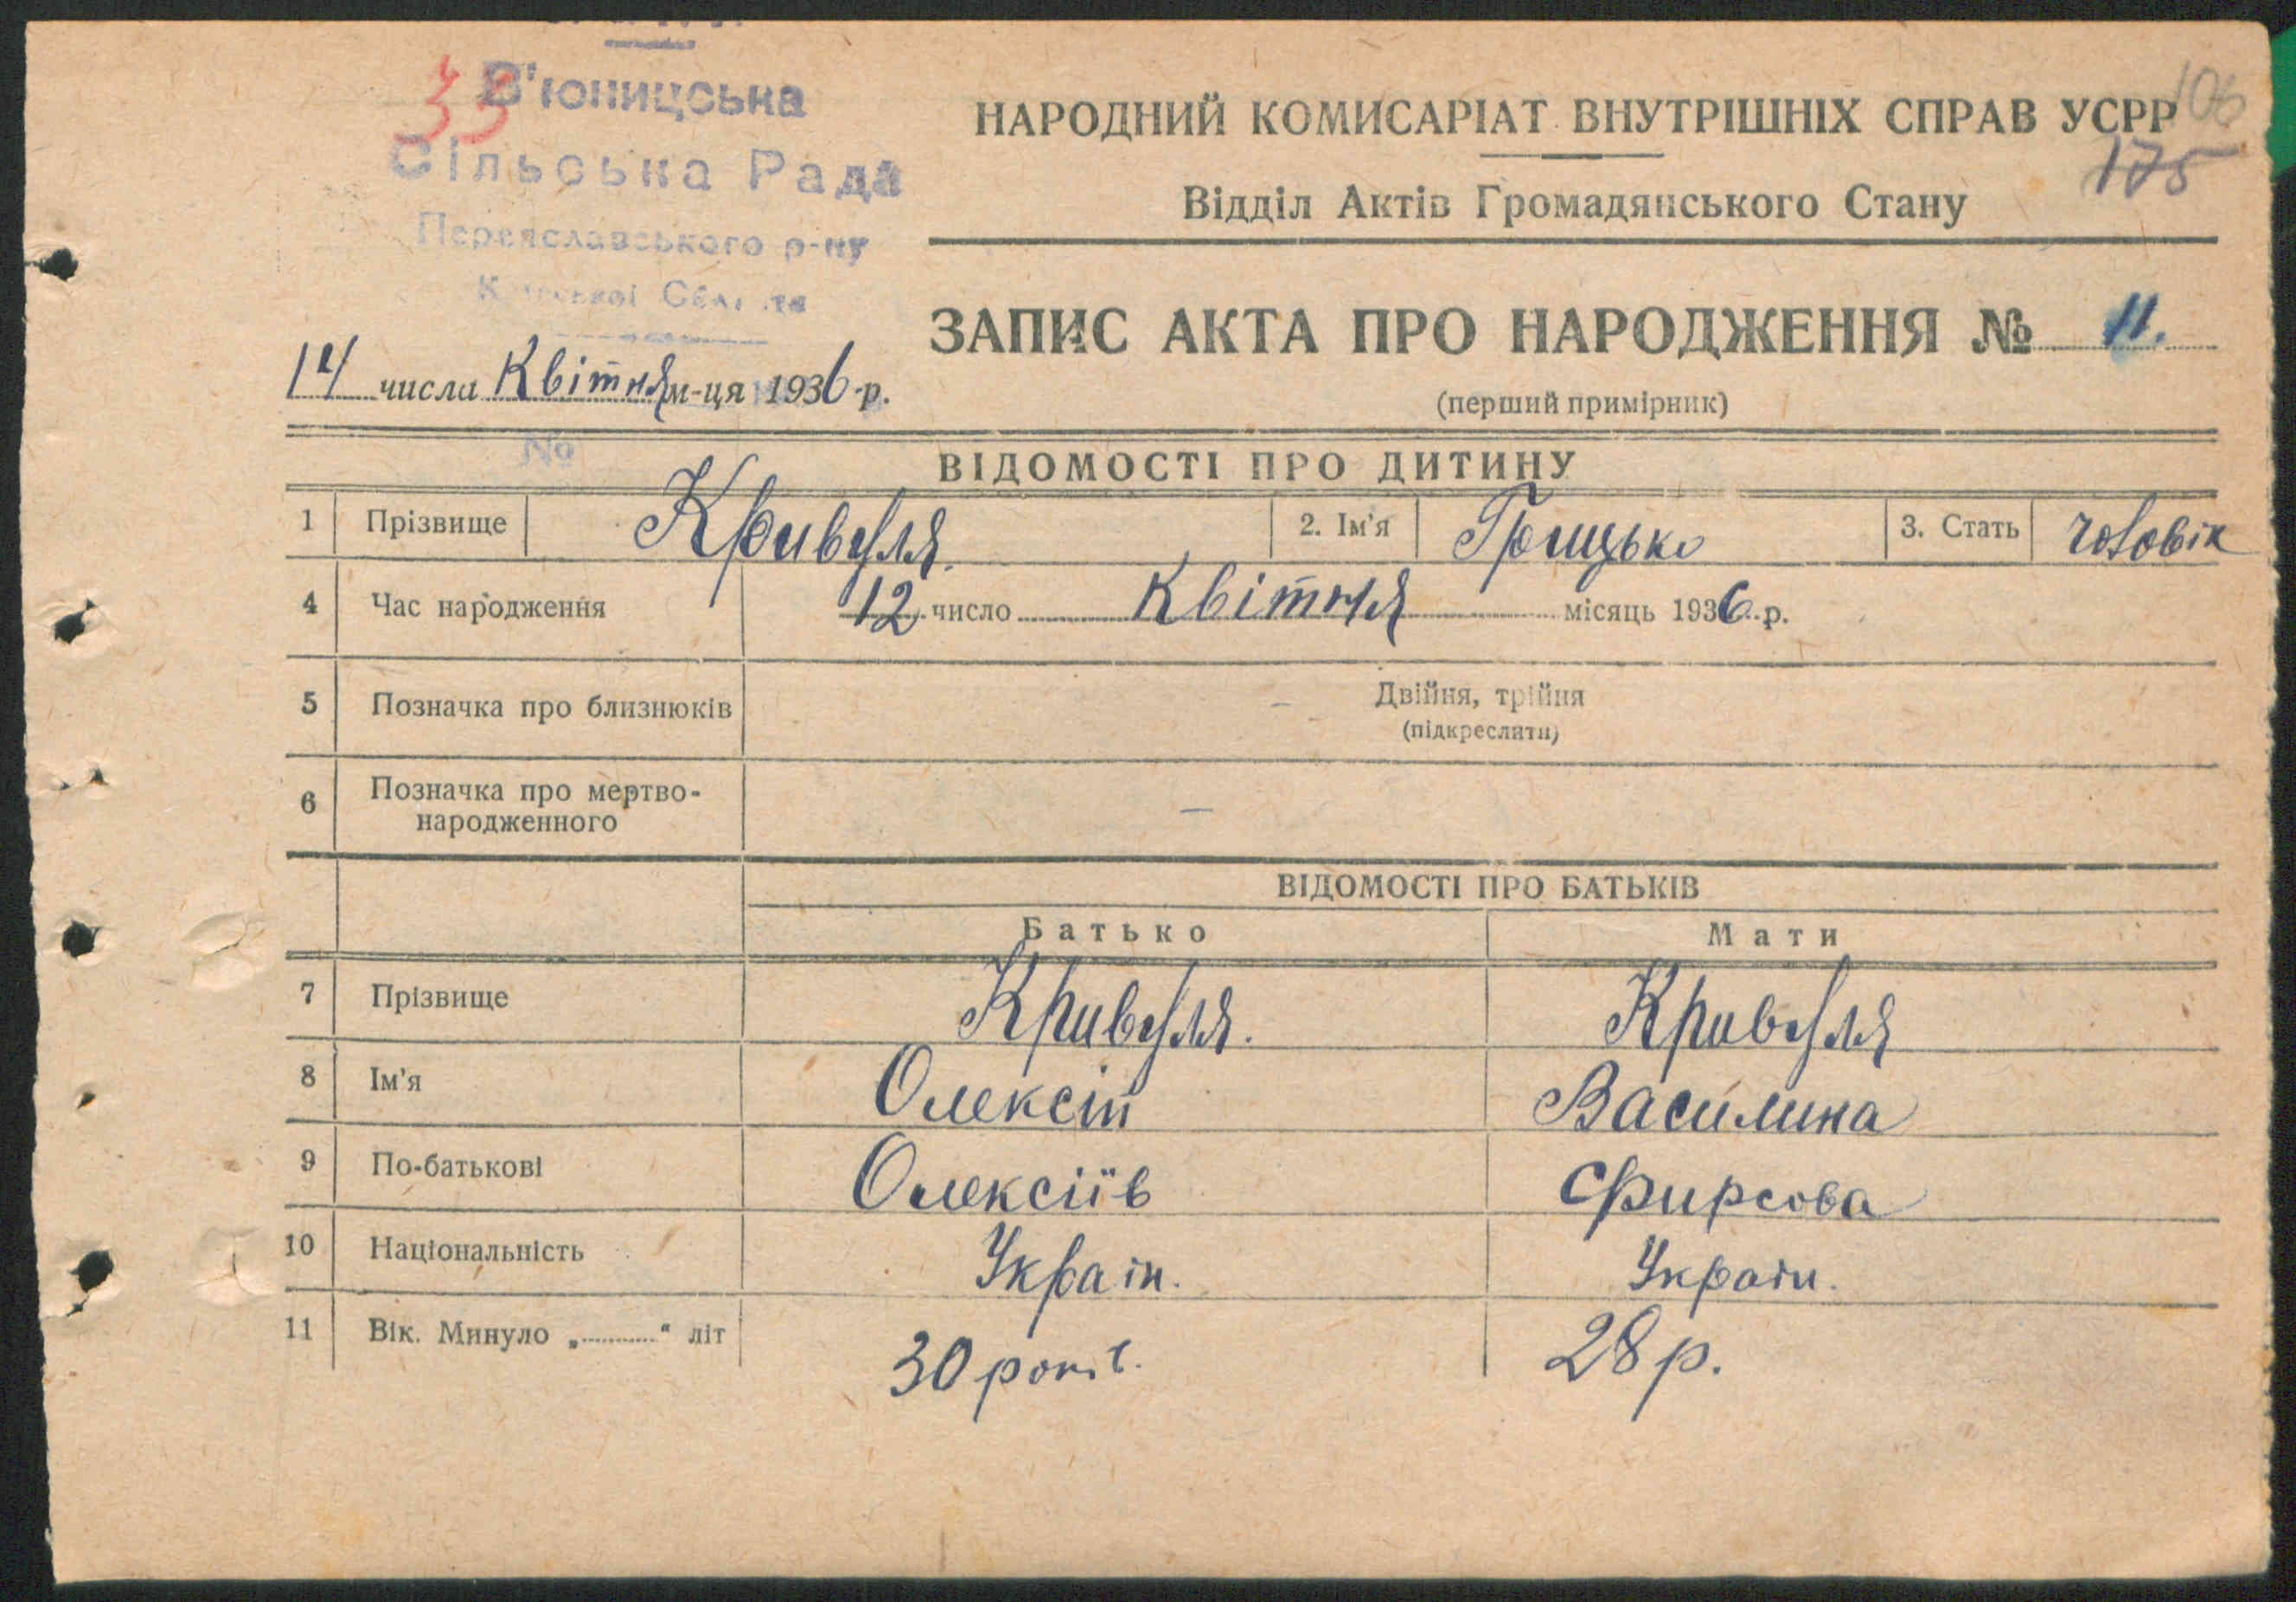 33
В'юницська
Сільська Рада
Переяславського р-ну
Київської Области
106
175
НАРОДНИЙ КОМИСАРІАТ ВНУТРІШНІХ СПРАВ УСРР
Відділ Актів Громадянського Стану
ЗАПИС АКТА ПРО НАРОДЖЕННЯ № 11.
(перший примірник)
14 числа Квітня м-ця 1936 р.
№
ВІДОМОСТІ ПРО ДИТИНУ
1 Прізвище Кривуля. 2. Ім'я Грицько 3. Стать чоловік
4 Час народження 12 число Квітня місяць 1936 р.
5 Позначка про близнюків Двійня, трійня
(підкреслити)
6 Позначка про мертво-
народженного —
ВІДОМОСТІ ПРО БАТЬКІВ
Батько Мати
7 Прізвище Кривуля. Кривуля
8 Ім'я Олексій Василина
9 По-батькові Олексіїв Фирсова
10 Національність Украін. Украін.
11 Вік. Минуло „..........“ літ 30 років. 28 р.